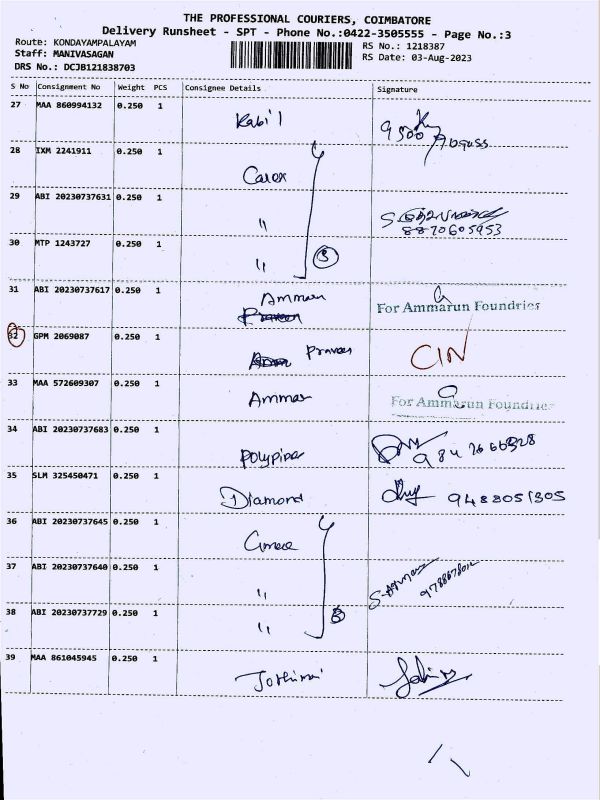 THE PROFESSIONAL COURIERS, COIMBATORE
Delivery Runsheet - SPT - Phone No.:0422-3505555 - Page No.:3
Route: KONDAYAMPALAYAM
RS No.: 1218387
Staff: MANIVASAGAN
RS Date: 03-Aug-2023
DRS No.: DCJB121838703
S No Consignment No Weight PCS Consignee Details Signature
27 MAA 860994132 0.250 1 Kabi'l
28 IXM 2241911 0.250 1 Carex
29 ABI 20230737631 0.250 1 "
8870605953
30 MTP 1243727 0.250 1 " 3
31 ABI 20230737617 0.250 1 Ammarun
For Ammarun Foundries
32 GPM 2069087 0.250 1 Praveen CIN
33 MAA 572609307 0.250 1 Ammar
For Ammarun Foundries
34 ABI 20230737683 0.250 1 Polypipes
35 SLM 325450471 0.250 1 Diamond 9488051305
36 ABI 20230737645 0.250 1
37 ABI 20230737640 0.250 1 "
38 ABI 20230737729 0.250 1 " 3
39 MAA 861045945 0.250 1